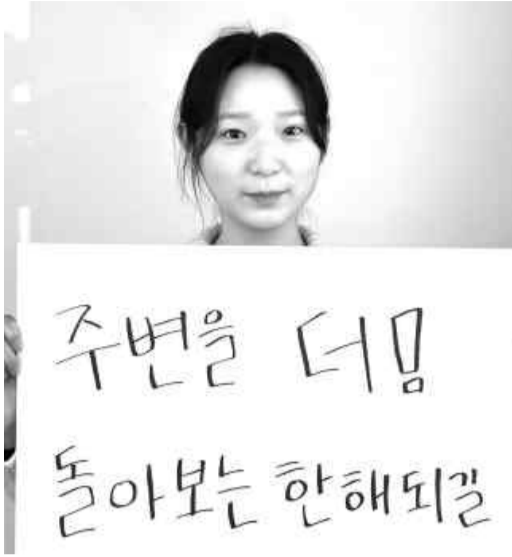 주변을 더 몀
돌아보는 한해되길